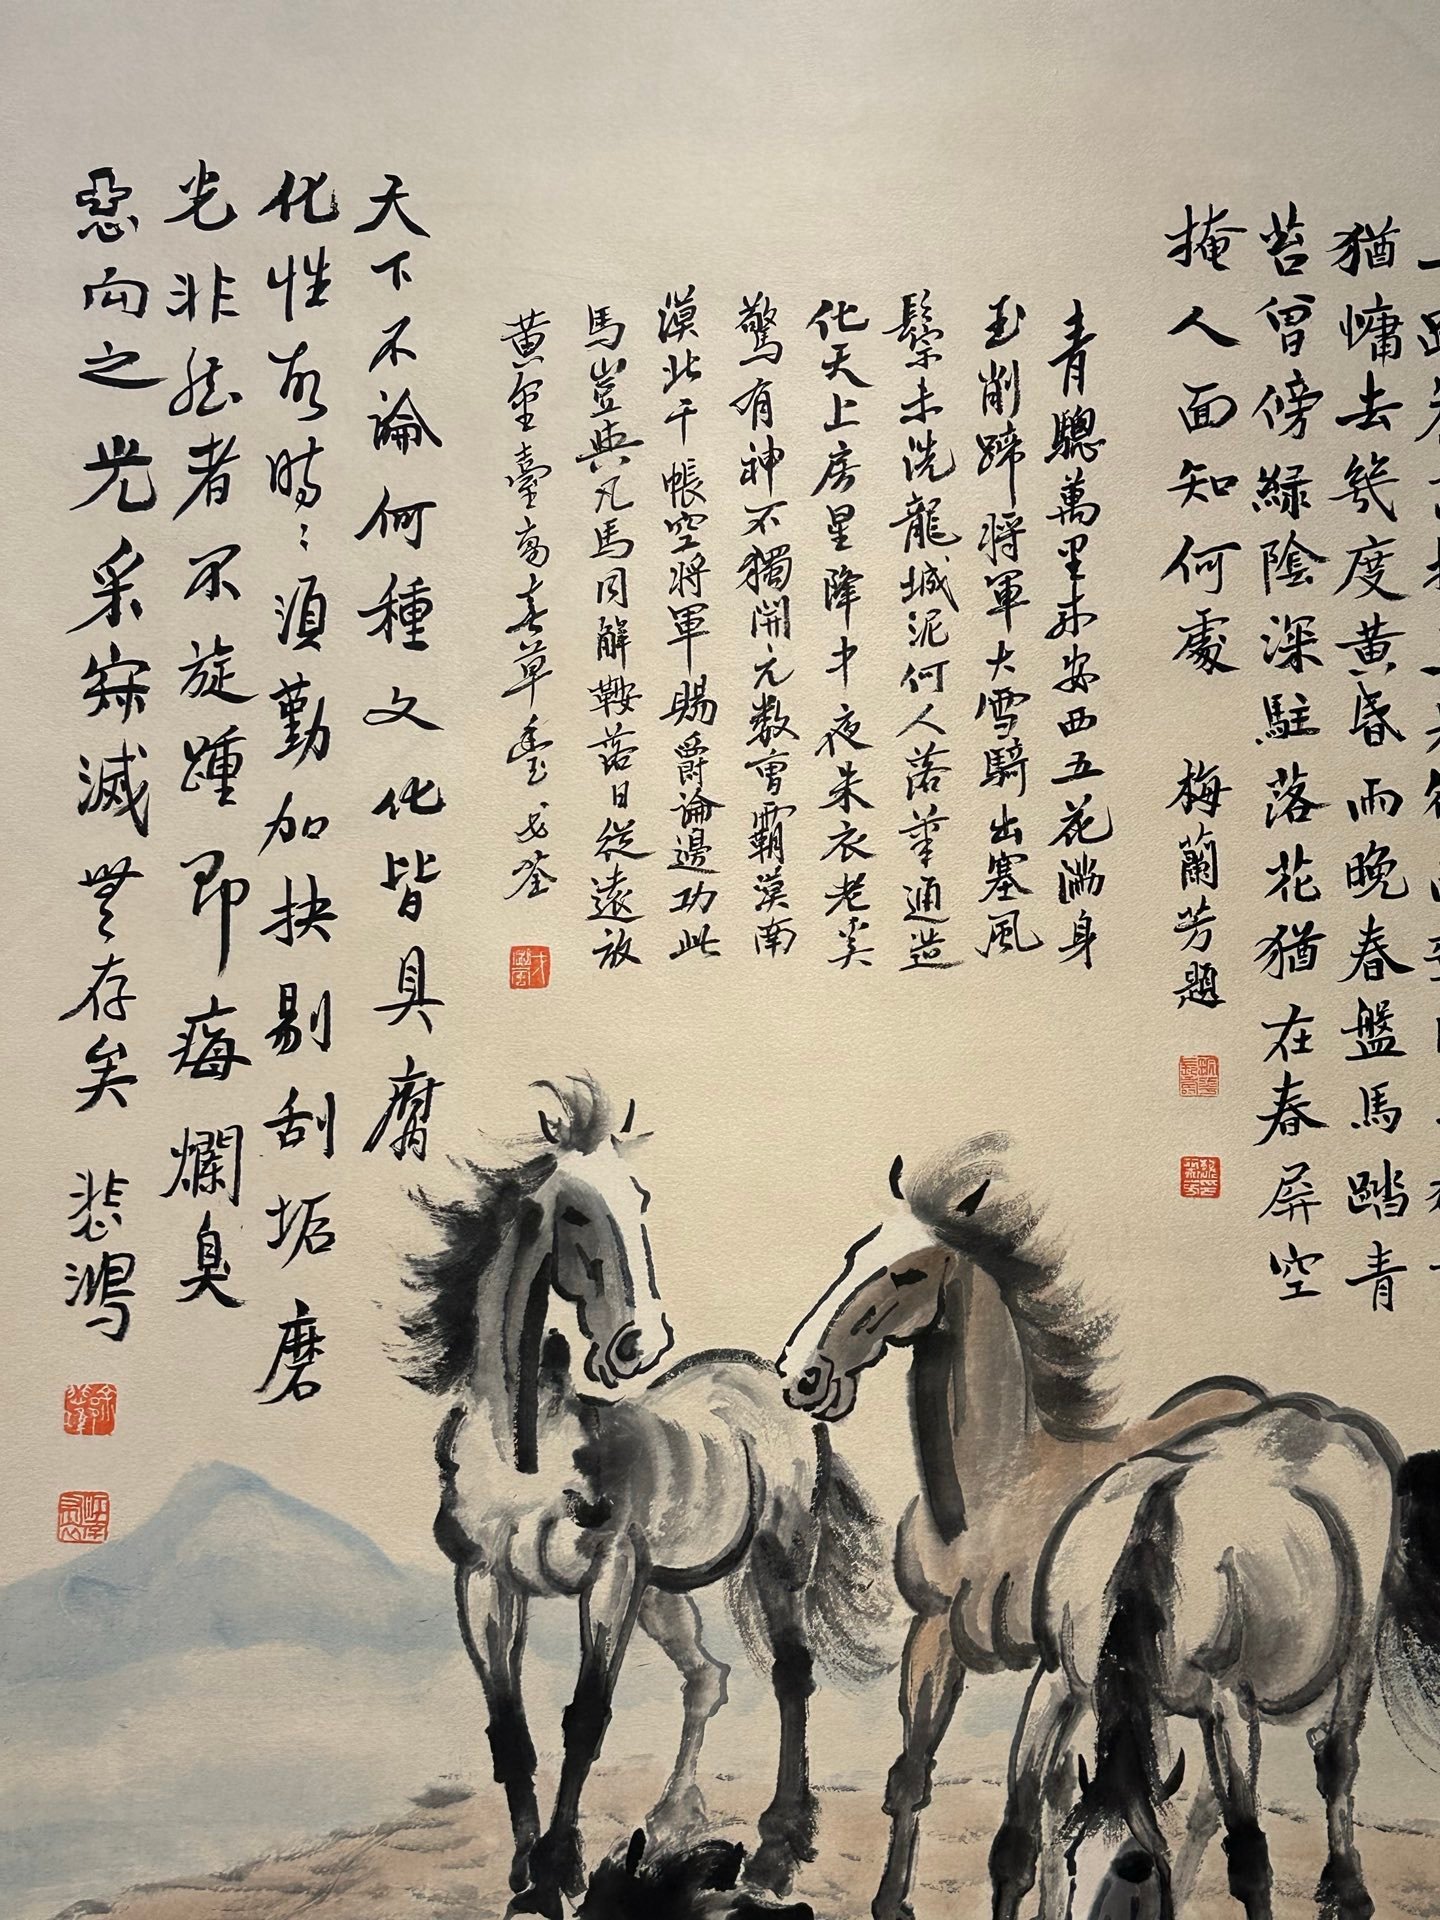 猶慵去幾度黃昏雨晚春盤馬踏青
苔曾傍綠陰深駐落花猶在春屏空
掩人面知何處 梅蘭芳題
青驄萬里來安西五花滿身
玉削蹄將軍大雪騎出塞風
鬃未洗龍城泥何人落筆通造
化天上房星降中夜朱衣老奚
驚有神不獨開元數曹霸漠南
漠北千帳空將軍賜爵論邊功此
馬豈與凡馬同解鞍落日從遠放
黃金臺高春草豐
天下不論何種文化皆具腐
化性故時〻須勤加抉剔刮垢磨
光非然者不旋踵即痗爛臭
惡向之光采寂滅無存矣 悲鴻